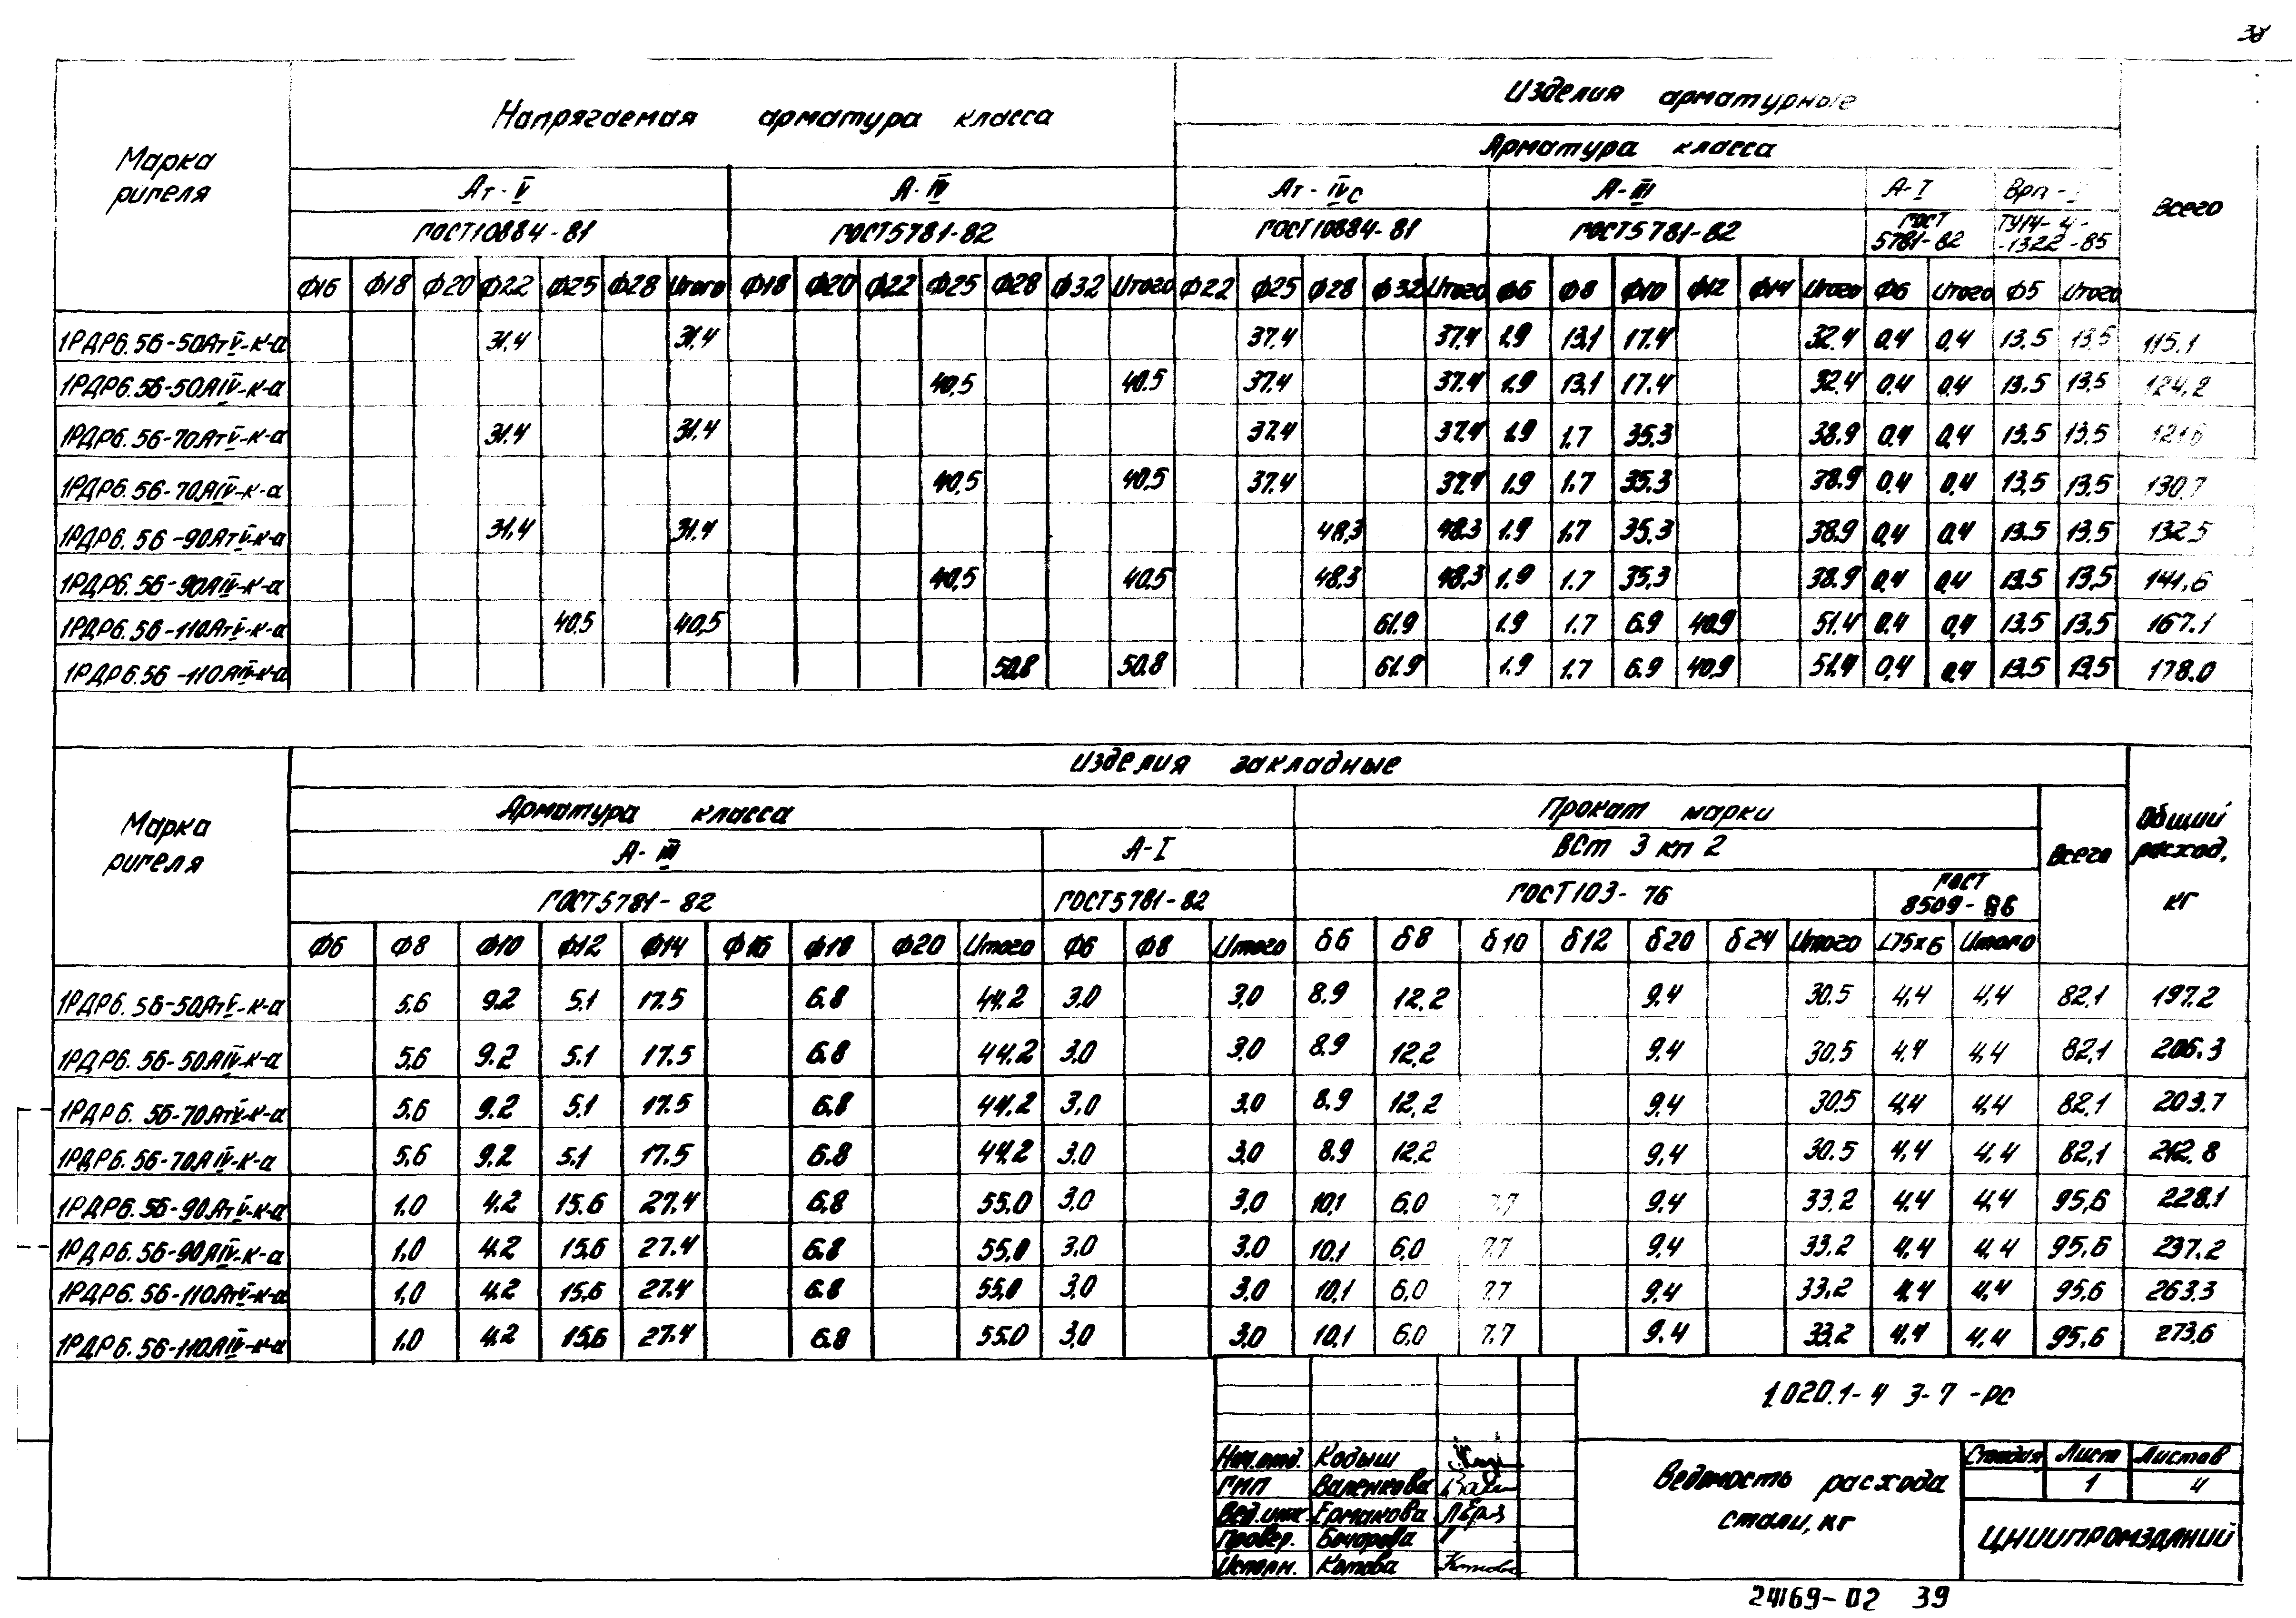 38
Марка ригеля | Напрягаемая арматура класса | Изделия арматурные | Всего
Арматура класса
Ат-V | А-IV | Ат-IVс | А-III | А-I | Врп-I
ГОСТ10884-81 | ГОСТ5781-82 | ГОСТ10884-81 | ГОСТ5781-82 | ГОСТ 5781-82 | ТУ14-4-1322-85
Ф16 Ф18 Ф20 Ф22 Ф25 Ф28 Итого Ф18 Ф20 Ф22 Ф25 Ф28 Ф32 Итого Ф22 Ф25 Ф28 Ф32 Итого Ф6 Ф8 Ф10 Ф12 Ф14 Итого Ф6 Итого Ф5 Итого
1РДР6.56-50АтV-к-а 31,4 31,4 37.4 37.4 1.9 13.1 17.4 32.4 0.4 0,4 13.5 13,5 115.1
1РДР6.56-50АIV-к-а 40,5 40.5 37.4 37.4 1.9 13,1 17.4 32.4 0.4 0,4 13.5 13,5 124,2
1РДР6.56-70АтV-к-а 31.4 31.4 37.4 37.4 1.9 1.7 35.3 38.9 0.4 0,4 13.5 13,5 121.6
1РДР6.56-70АIV-к-а 40,5 40,5 37.4 37.4 1.9 1.7 35.3 38.9 0,4 0,4 13,5 13,5 130,7
1РДР6.56-90АтV-к-а 31.4 31.4 48,3 48.3 1.9 1.7 35,3 38.9 0,4 0,4 13.5 13,5 132.5
1РДР6.56-90АIV-к-а 40,5 40.5 48.3 48,3 1.9 1.7 35.3 38.9 0,4 0,4 13.5 13,5 141,6
1РДР6.56-110АтV-к-а 40,5 40,5 61.9 1.9 1.7 6.9 40,9 51.4 0.4 0,4 13,5 13,5 167.1
1РДР6.56-110АIV-к-а 50,8 50.8 61.9 1.9 1.7 6.9 40,9 51.4 0,4 0,4 13.5 13,5 178.0
Марка ригеля | Изделия закладные | Общий расход, кг
Арматура класса | Прокат марки | Всего
А-III | А-I | ВСт 3 кп 2
ГОСТ5781-82 | ГОСТ5781-82 | ГОСТ103-76 | ГОСТ 8509-86
Ф6 Ф8 Ф10 Ф12 Ф14 Ф16 Ф18 Ф20 Итого Ф6 Ф8 Итого δ6 δ8 δ10 δ12 δ20 δ24 Итого L75×6 Итого
1РДР6.56-50АтV-к-а 5,6 9.2 5.1 17.5 6.8 44.2 3.0 3,0 8.9 12,2 9.4 30.5 4,4 4,4 82,1 197.2
1РДР6.56-50АIV-к-а 5,6 9.2 5.1 17.5 6.8 44.2 3.0 3,0 8.9 12,2 9.4 30.5 4.4 4,4 82,1 206.3
1РДР6.56-70АтV-к-а 5,6 9.2 5.1 17.5 6.8 44.2 3,0 3.0 8.9 12,2 9.4 30.5 4,4 4,4 82,1 203.7
1РДР6.56-70АIV-к-а 5,6 9.2 5.1 17.5 6.8 44.2 3.0 3.0 8.9 12,2 9,4 30.5 4.4 4,4 82,1 212.8
1РДР6.56-90АтV-к-а 1.0 4.2 15.6 27.4 6,8 55.0 3.0 3.0 10,1 6,0 7.7 9.4 33,2 4.4 4,4 95,6 228.1
1РДР6.56-90АIV-к-а 1.0 4.2 15.6 27.4 6.8 55,0 3.0 3.0 10.1 6,0 7.7 9.4 33.2 4,4 4,4 95,6 237.2
1РДР6.56-110АтV-к-а 1,0 4.2 15,6 27.4 6.8 55,0 3,0 3.0 10,1 6,0 7.7 9.4 33,2 4.4 4,4 95,6 263.3
1РДР6.56-110АIV-к-а 1.0 4.2 15,6 27.4 6.8 55.0 3,0 3.0 10.1 6,0 7.7 9.4 33.2 4.4 4,4 95,6 273,6
1.020.1-4 3-7 -РС
Нач.отд. Кодыш
ГИПВаленкова
Вед.инж. Ермакова
Провер. Бочарова
Исполн. Котова
Ведомость расхода
стали, кг
Стадия Лист Листов
1 4
ЦНИИПРОМЗДАНИЙ
24169-02 39